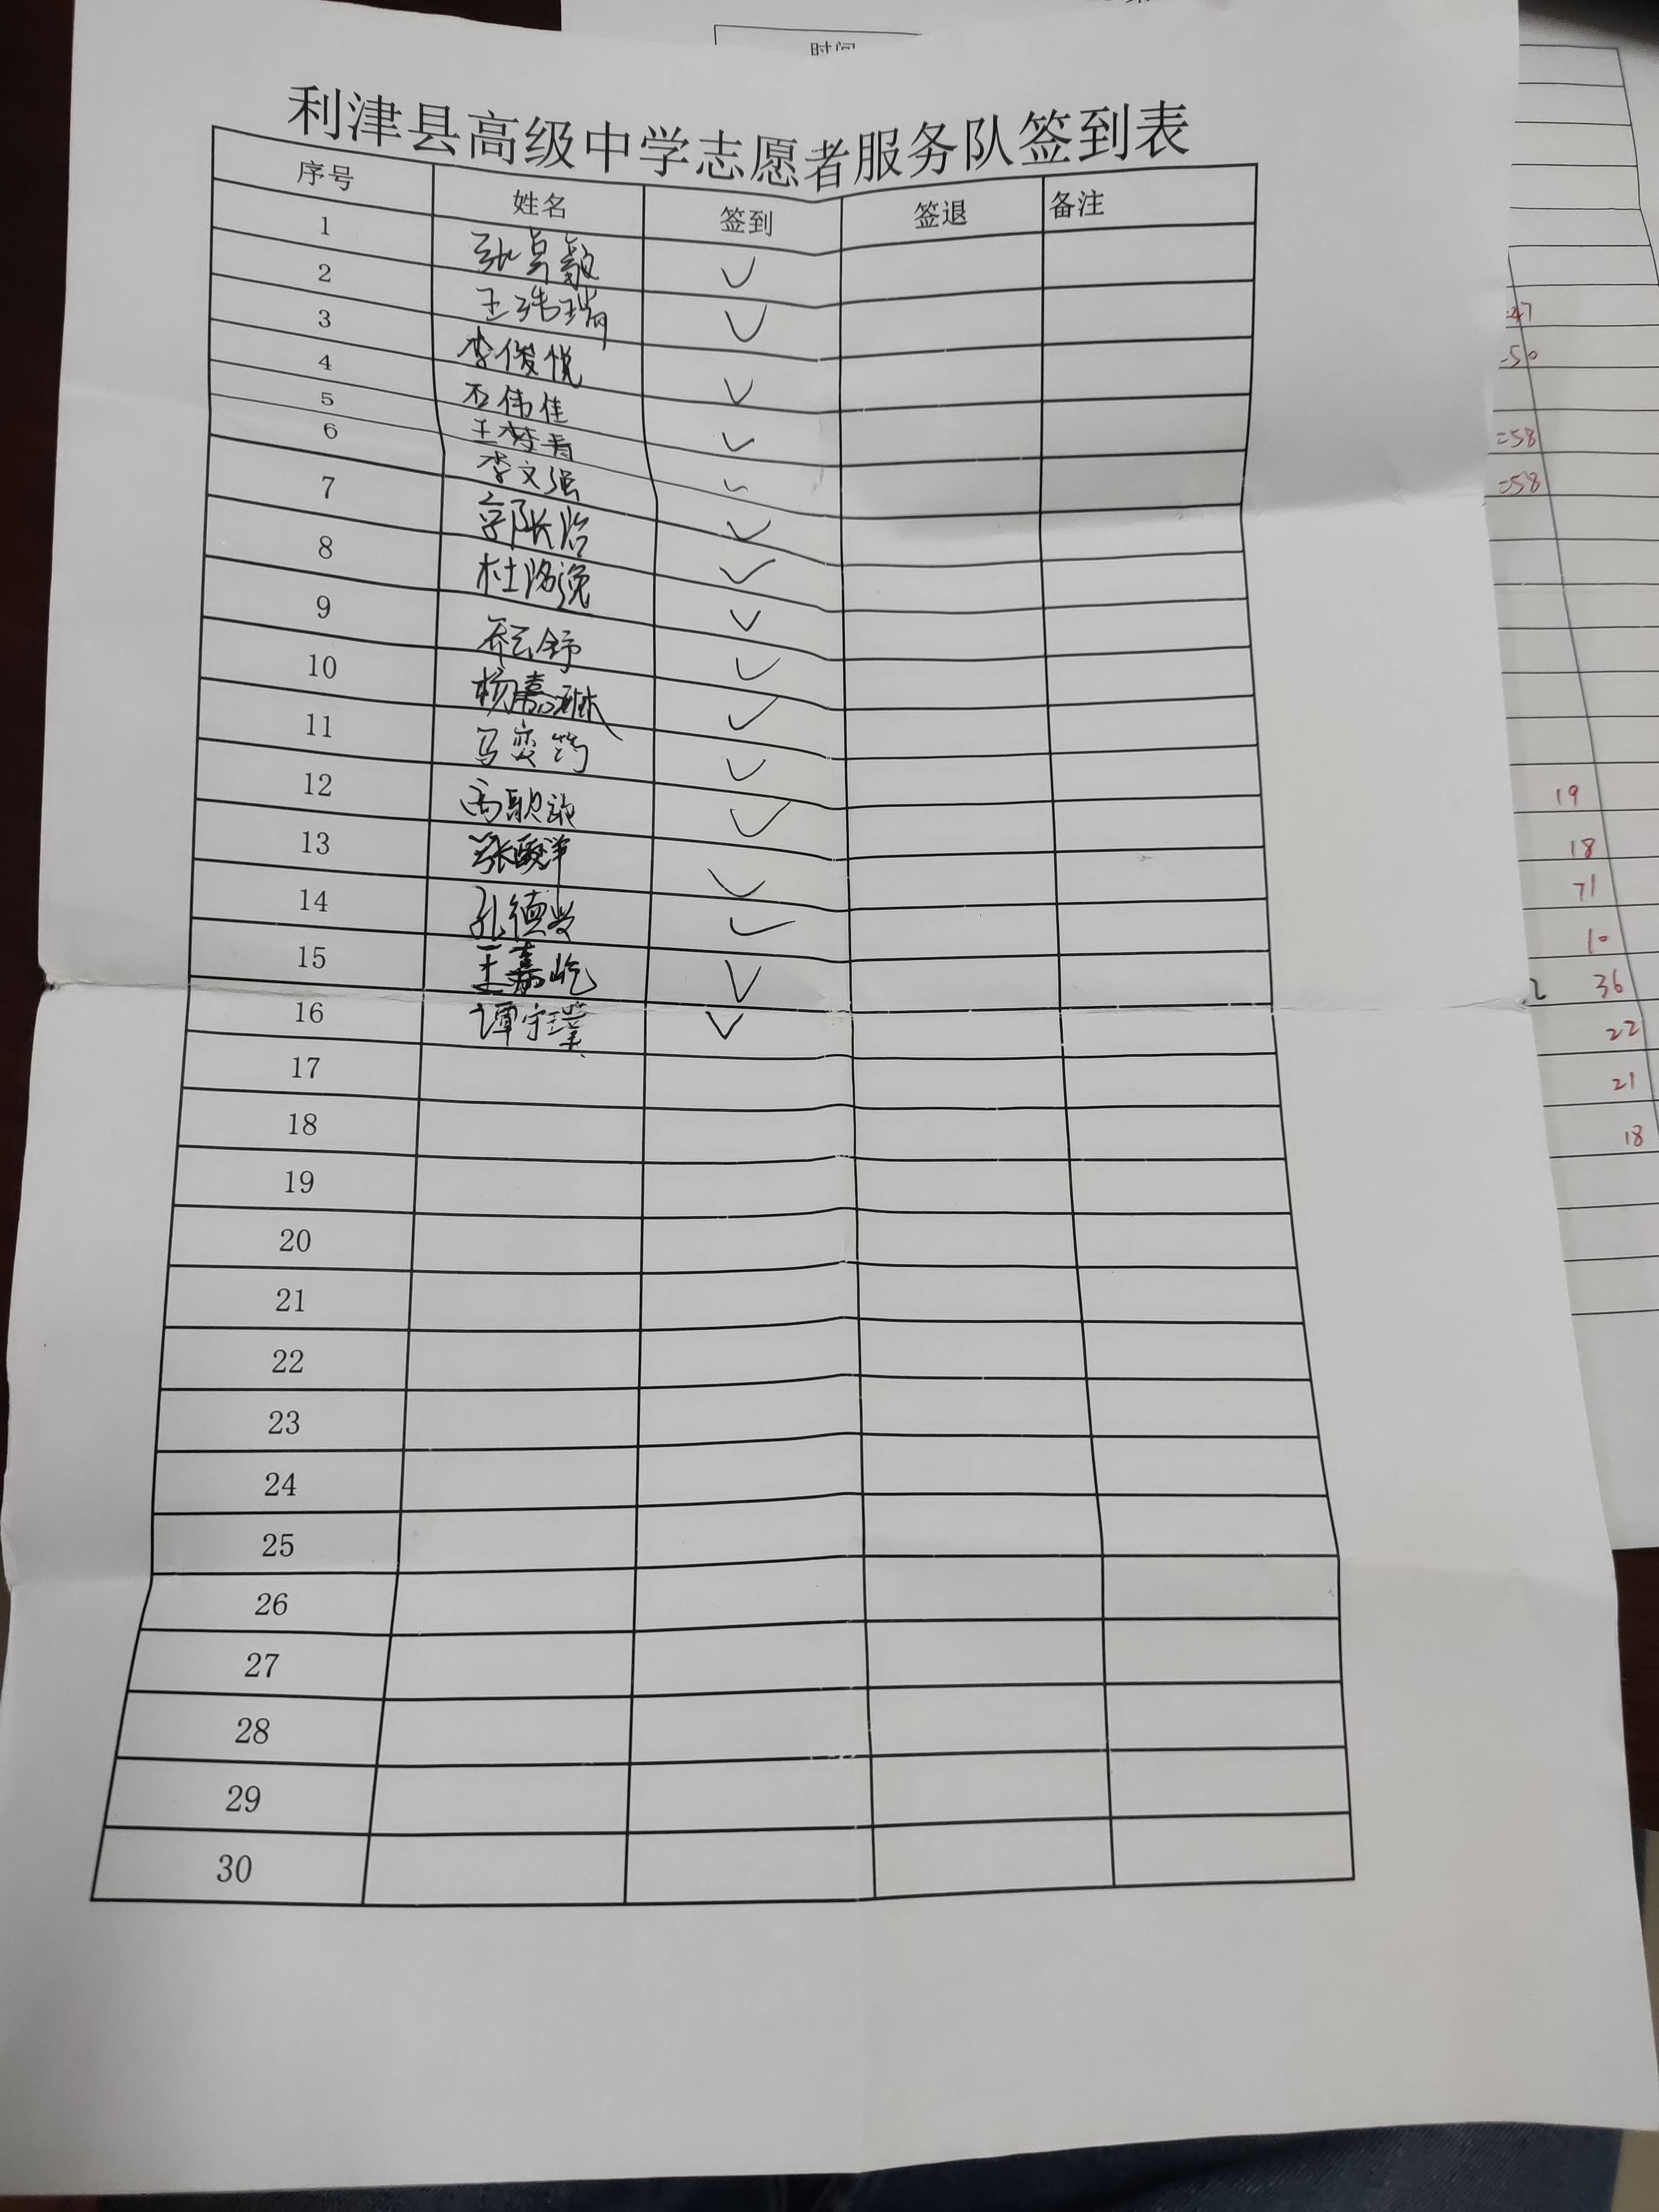 时间
利津县高级中学志愿者服务队签到表
序号 姓名 签到 签退 备注
1 张昊毅 ✓
2 王玮瑞 ✓
3 李俊悦 ✓
4 石伟佳 ✓
5 王梦青 ✓
6 李文强 ✓
7 郭长治 ✓
8 杜洺逸 ✓
9 乔云舒 ✓
10 杨嘉琳 ✓
11 马奕筠 ✓
12 ✓
13 ✓
14 孔德发 ✓
15 王嘉屹 ✓
16 谭宇璞 ✓
17
18
19
20
21
22
23
24
25
26
27
28
29
30
=47
=50
=58
=58
19
18
71
10
2 36
22
21
18